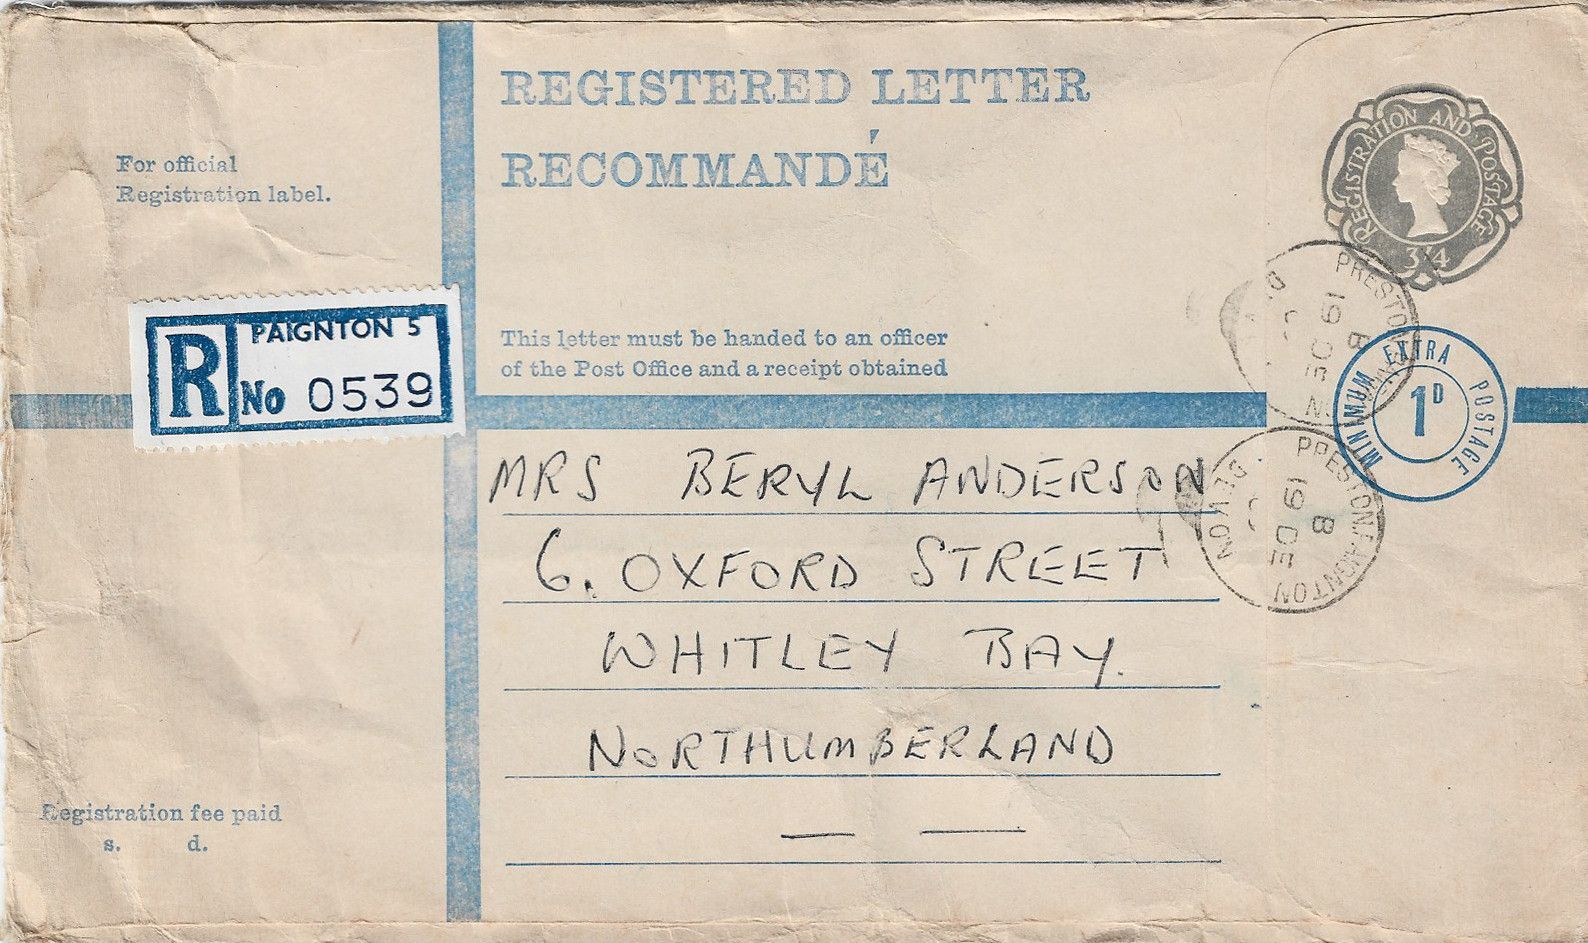 REGISTERED LETTER
RECOMMANDÉ
For official
Registration label.
REGISTRATION AND POSTAGE
3/4
PAIGNTON 5
R No 0539
This letter must be handed to an officer
of the Post Office and a receipt obtained
PRESTON
B
19 DE
EXTRA POSTAGE
MINIMUM
1D
MRS BERYL ANDERSON
6. OXFORD STREET
WHITLEY BAY.
NORTHUMBERLAND
— —
PRESTON. PAIGNTON
DEVON
B
19 DE
Registration fee paid
s. d.